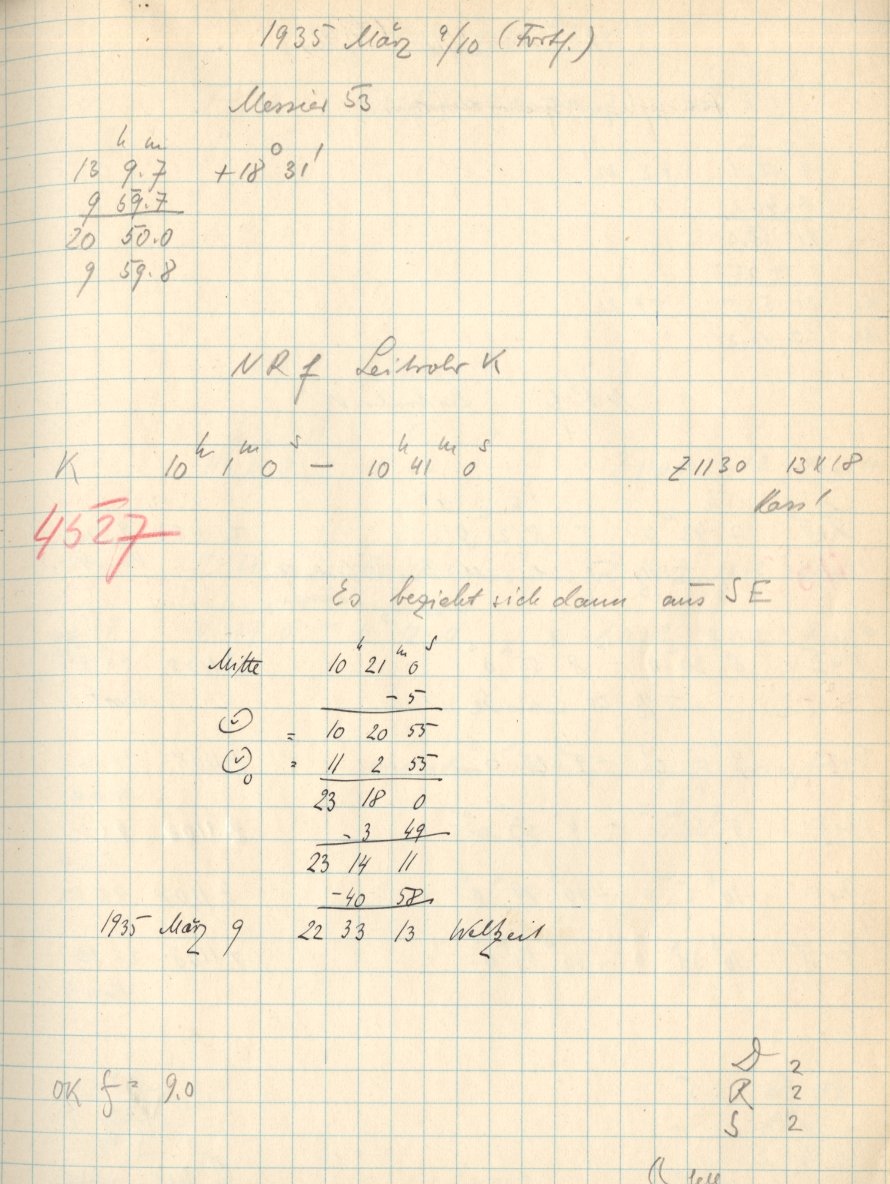 1935 März 9/10 (Fortf.)
Messier 53
h m
13 9.7 +18° 31'
9 59.7
20 50.0
9 59.8
NR f Leitrohr K
K 10h 1m 0s — 10h 41m 0s Z1130 13X18
4527
Es bezieht sich dann aus SE
Mitte 10h 21m 0s
-5
= 10 20 55
0 = 11 2 55
23 18 0
-3 49
23 14 11
-40 58
1935 März 9 22 33 13 Weltzeit
OK f = 9.0
D 2
R 2
S 2